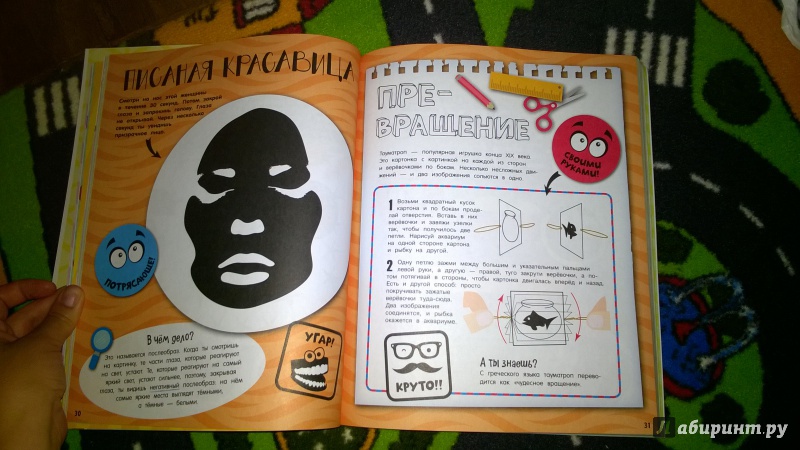 ПИСАНАЯ КРАСАВИЦА
Смотри на нос этой женщины
в течение 30 секунд. Потом закрой
глаза и запрокинь голову. Глаза
не открывай. Через несколько
секунд ты увидишь
призрачное лицо.
ПОТРЯСАЮЩЕ!
В чём дело?
Это называется послеобраз. Когда ты смотришь
на картинку, те части глаза, которые реагируют
на свет, устают. Те, которые реагируют на самый
яркий свет, устают сильнее, поэтому, закрывая
глаза, ты видишь негативный послеобраз: на нём
самые яркие места выглядят тёмными,
а тёмные — белыми.
УГАР!
30
ПРЕ-
ВРАЩЕНИЕ
Тауматроп — популярная игрушка конца XIX века.
Это картонка с картинкой на каждой из сторон
и верёвочками по бокам. Несколько несложных дви-
жений — и два изображения сольются в одно.
СВОИМИ
РУКАМИ!
1 Возьми квадратный кусок
картона и по бокам проде-
лай отверстия. Вставь в них
верёвочки и завяжи узелки
так, чтобы получилось две
петли. Нарисуй аквариум
на одной стороне картона
и рыбку на другой.
2 Одну петлю зажми между большим и указательным пальцами
левой руки, а другую — правой, туго закрути верёвочки, а по-
том потягивай в стороны, чтобы картонка двигалась вперёд и назад.
Есть и другой способ: просто
покручивать зажатые
верёвочки туда-сюда.
Два изображения
соединятся, и рыбка
окажется в аквариуме.
КРУТО!!
А ты знаешь?
С греческого языка тауматроп перево-
дится как «чудесное вращение».
31
Лабиринт.ру